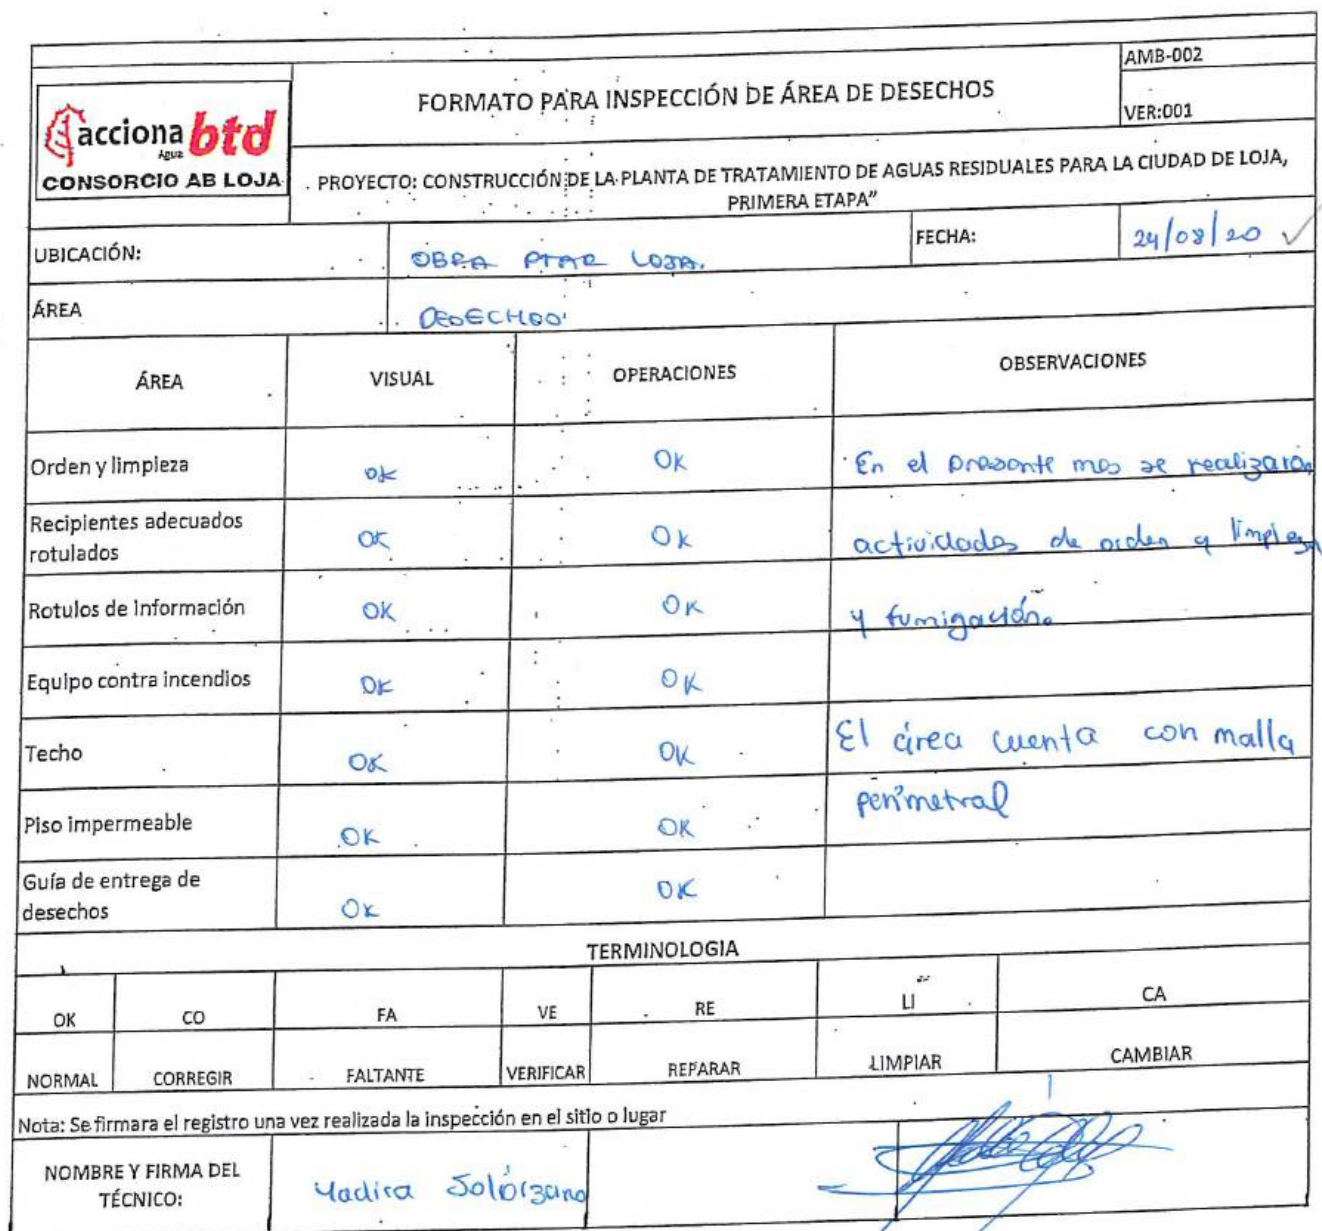 AMB-002
FORMATO PARA INSPECCIÓN DE ÁREA DE DESECHOS
VER:001
acciona btd
Agua
CONSORCIO AB LOJA
PROYECTO: CONSTRUCCIÓN DE LA PLANTA DE TRATAMIENTO DE AGUAS RESIDUALES PARA LA CIUDAD DE LOJA,
PRIMERA ETAPA”
UBICACIÓN: OBRA PTAR LOJA. FECHA: 24/08/20
ÁREA DESECHOS
ÁREA VISUAL OPERACIONES OBSERVACIONES
Orden y limpieza OK OK En el presente mes se realizaron
Recipientes adecuados
rotulados OK OK actividades de orden y limpieza
Rotulos de Información OK OK y fumigación.
Equipo contra incendios OK OK
Techo OK OK El área cuenta con malla
Piso impermeable OK OK perimetral
Guía de entrega de
desechos OK OK
TERMINOLOGIA
OK CO FA VE RE LI CA
NORMAL CORREGIR FALTANTE VERIFICAR REPARAR LIMPIAR CAMBIAR
Nota: Se firmara el registro una vez realizada la inspección en el sitio o lugar
NOMBRE Y FIRMA DEL
TÉCNICO: Yadira Solórzano